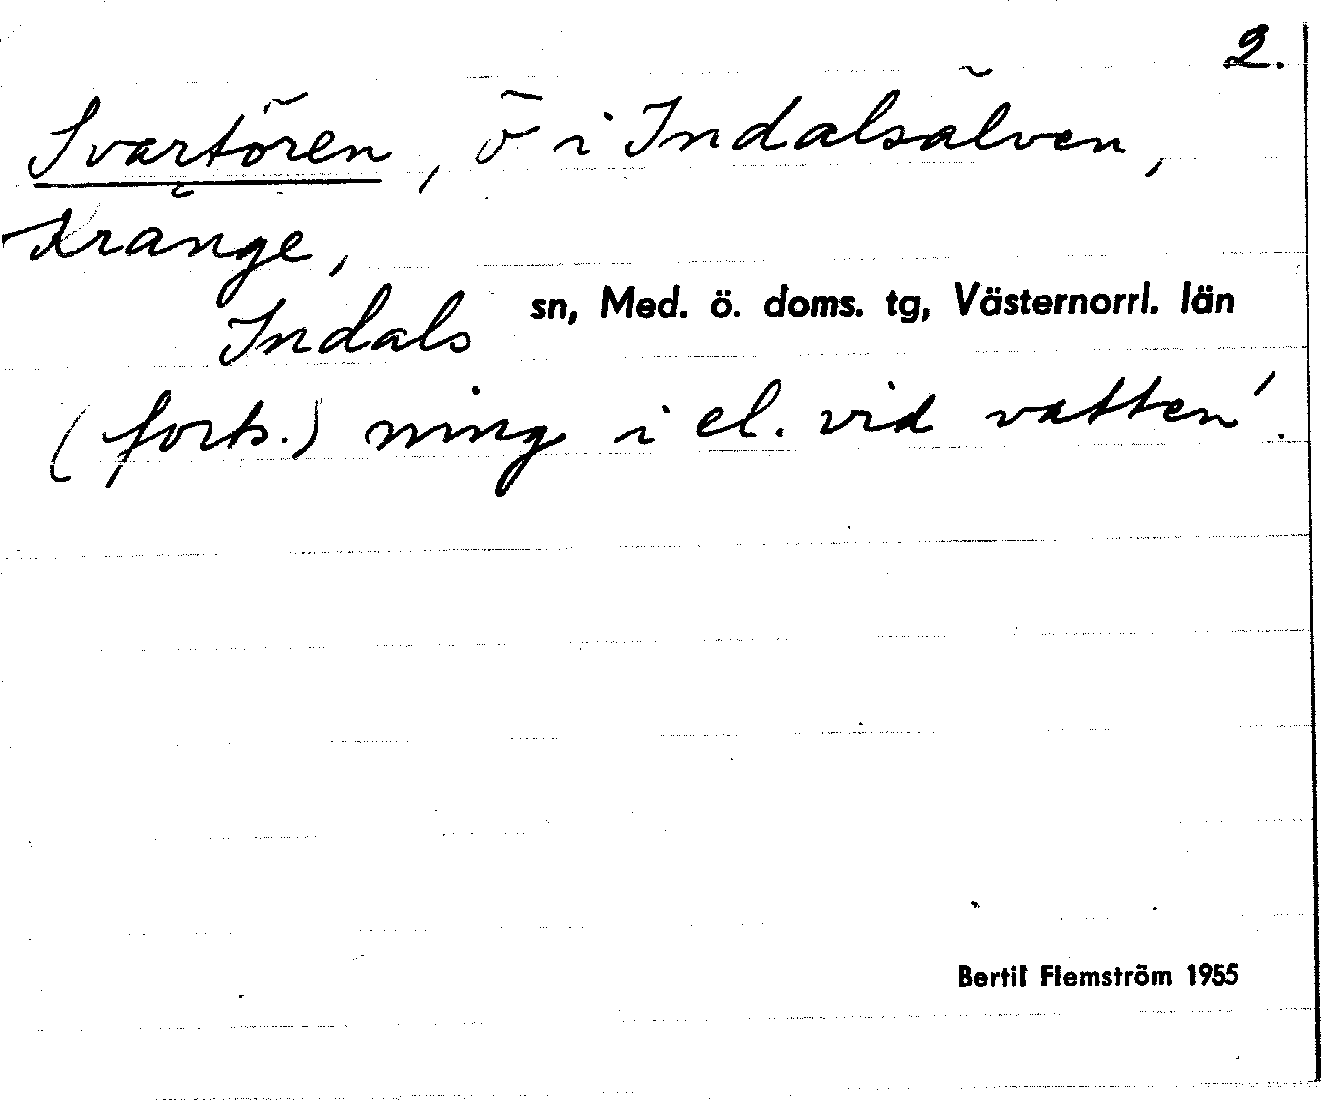 2.
Svartören, ö i Indalsälven,
Kränge,
Indals sn, Med. ö. doms. tg, Västernorrl. län
(forts.) ning i el. vid vatten'.
Bertil Flemström 1955